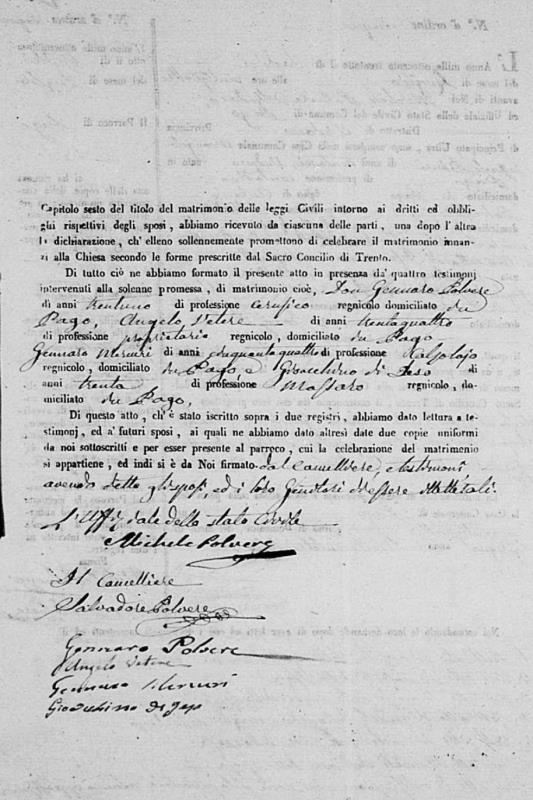 Capitolo sesto del titolo del matrimonio delle leggi Civili intorno ai dritti ed obbli-
ghi rispettivi degli sposi, abbiamo ricevuto da ciascuna delle parti, una dopo l'altra
la dichiarazione, ch'elleno sollennemente promettono di celebrare il matrimonio innan-
zi alla Chiesa secondo le forme prescritte dal Sacro Concilio di Trento.
Di tutto ciò ne abbiamo formato il presente atto in presenza da'quattro testimoni
intervenuti alla solenne promessa, di matrimonio cioè, Don Gennaro Polvere
di anni trentuno di professione cerusico regnicolo domiciliato in
Pago, Angelo Vetere di anni trentaquattro
di professione proprietario regnicolo, domiciliato in Pago
Gennaro Mercuri di anni cinquantaquattro di professione
regnicolo, domiciliato in Pago e Gioacchino di di
anni trenta di professione Massaro regnicolo, do-
miciliato in Pago,
Di questo atto, ch'è stato iscritto sopra i due registri, abbiamo dato lettura a te-
stimonj, ed a' futuri sposi, ai quali ne abbiamo dato altresì date due copie uniformi
da noi sottoscritti e per esser presente al parroco, cui la celebrazione del matrimonio
si appartiene, ed indi si è da Noi firmato dal Cancelliere, e testimoni
avendo detto gli sposi, ed i loro Genitori di essere illetterati.
L'Uffiziale dello stato Civile
Michele Polvere
Il Cancelliere
Salvadore Polvere
Gennaro Polvere
Angelo Vetere
Gennaro Mercuri
Gioacchino di